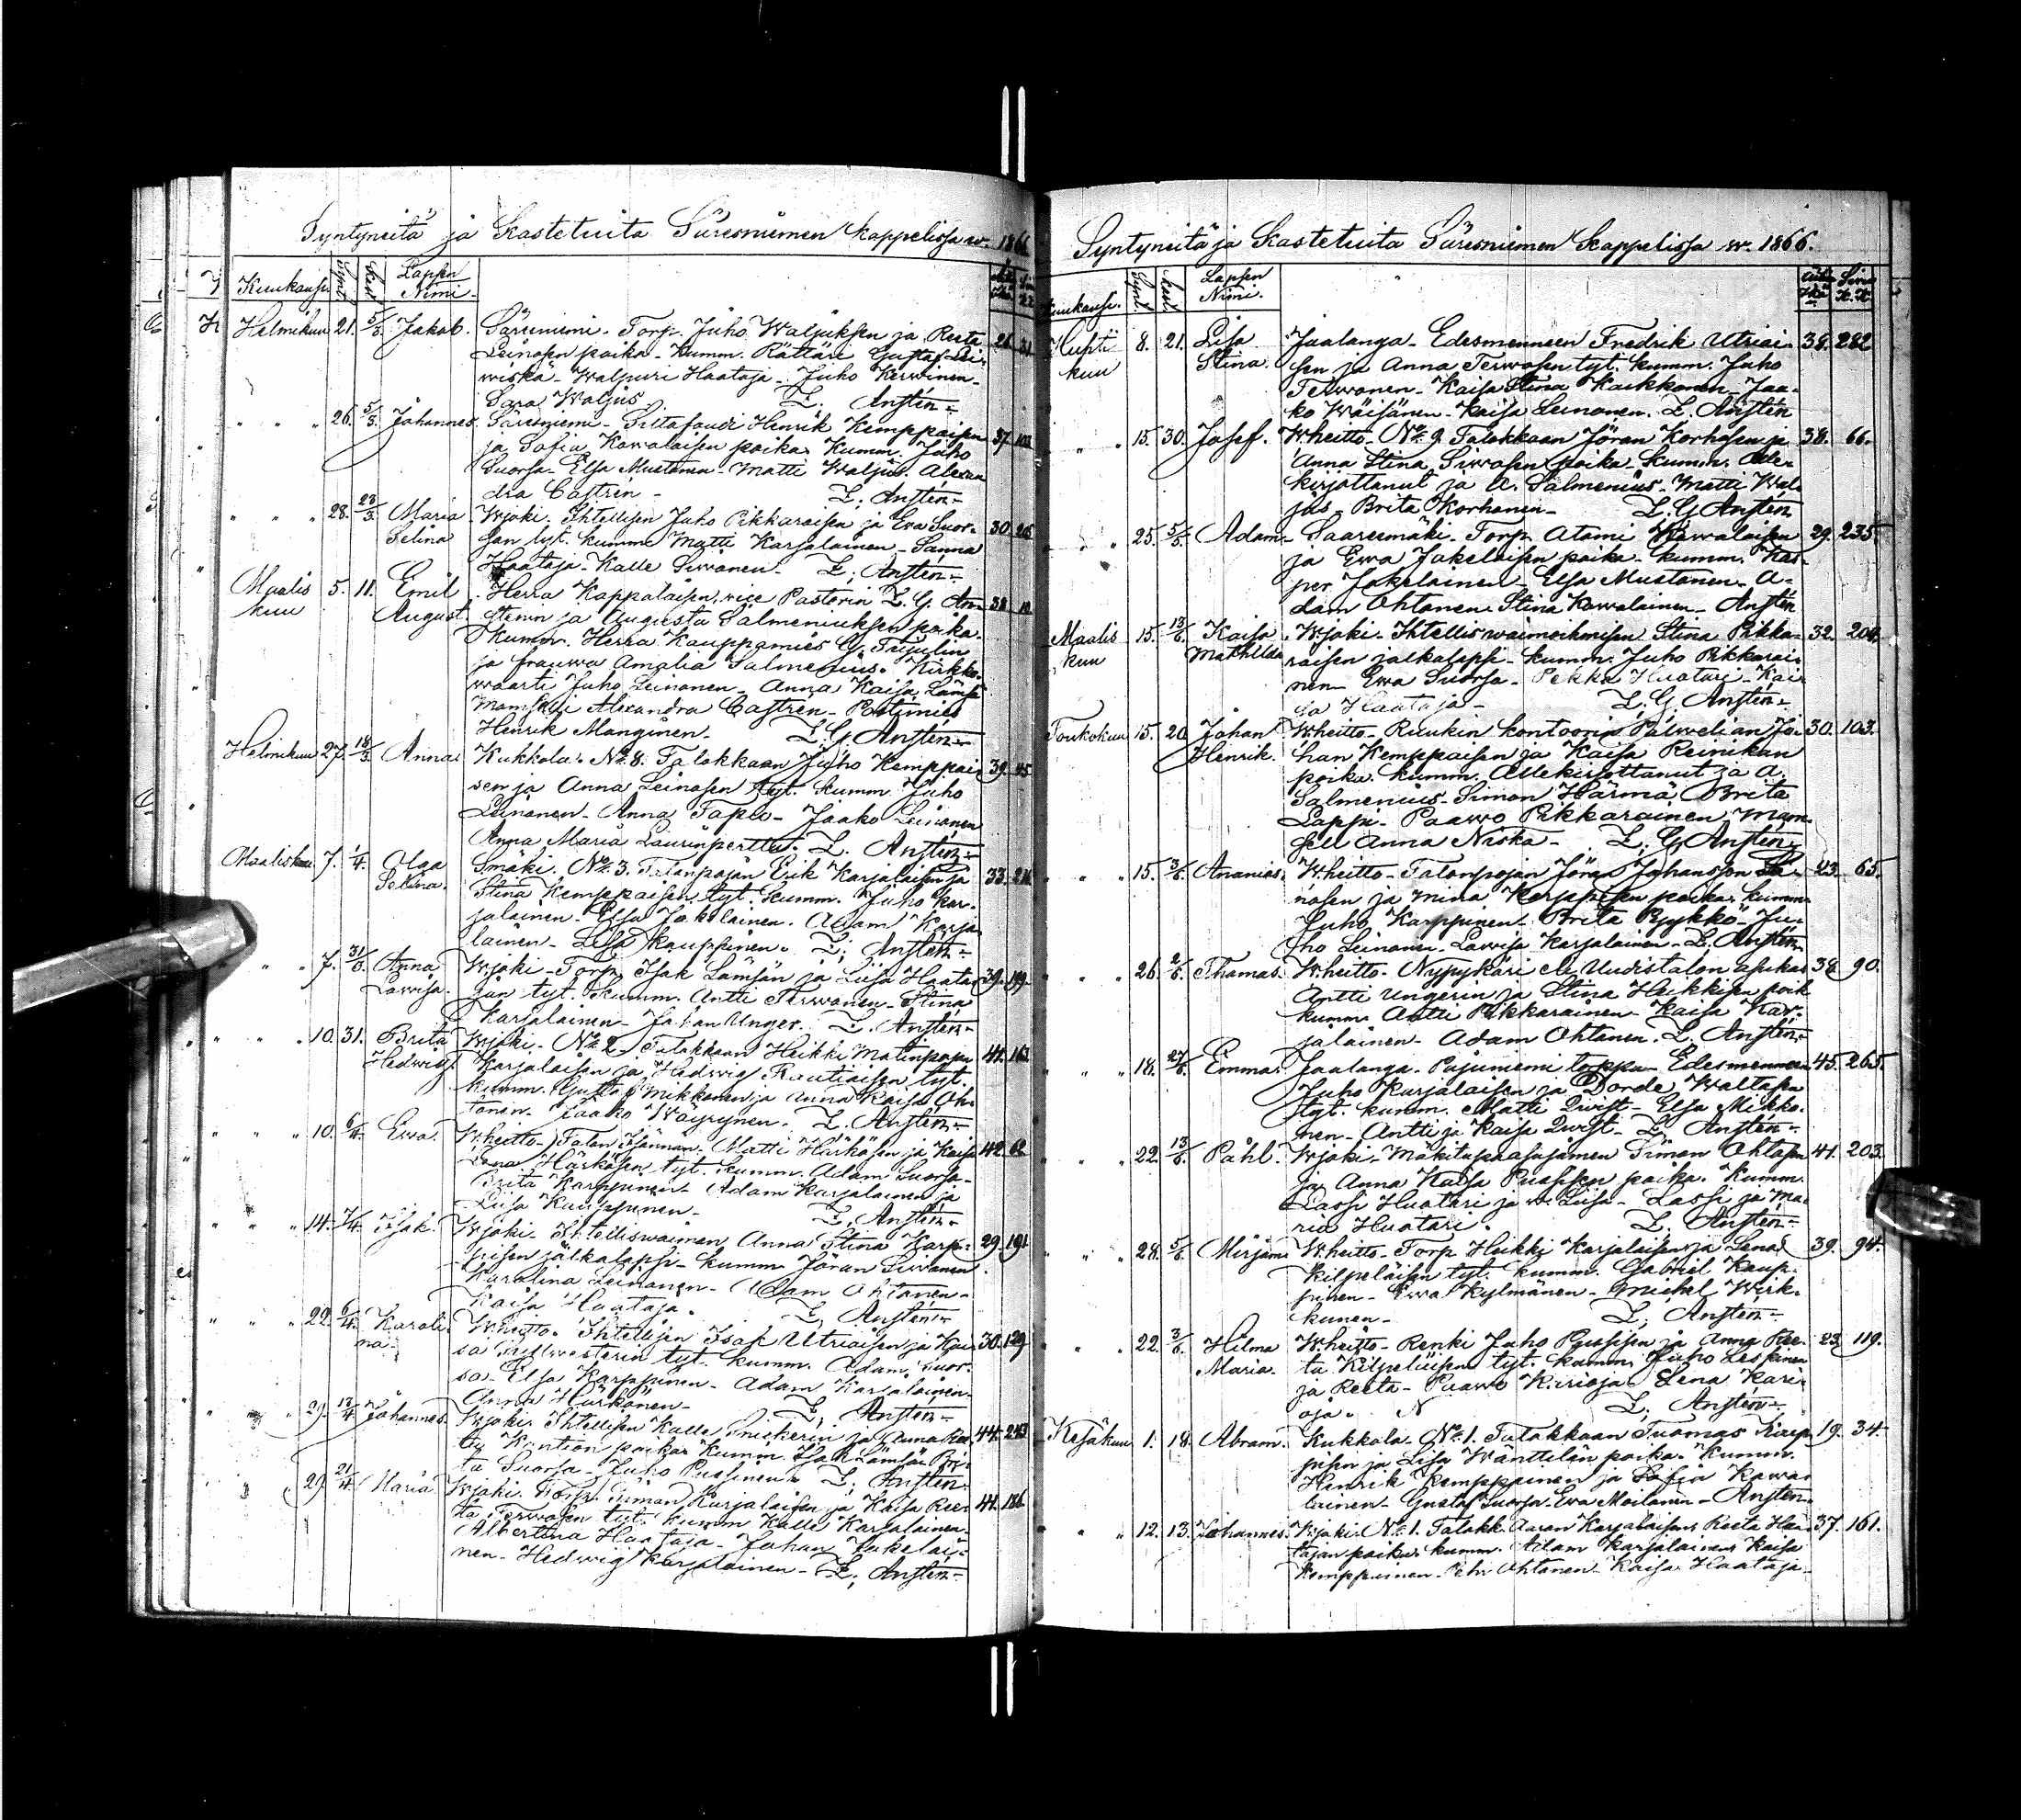 Syntyneitä ja Kastetuita Säresniemen kappelissa w. 1866
Kuukausi. Synt. Kast. Lapsen Nimi.
Helmikuu 21. 5/3. Jakob. Säresniemi. Torp. Juho Waljuksen ja Reeta 26. 31.
Leinosen poika. Kumm. Rättäri Gustaf Lei-
wiskä - Walpuri Haataja - Juho Kerwinen
Sara Waljus. L. Anstén
" 26. 5/3. Johannes. Säresniemi - Siltafoudi Henrik Kemppaisen 37.
ja Sofia Kowalaisen poika. Kumm. Juho
Suorsa - Elsa Mustonen - Matti Waljus. Alexan
dra Castrén - L. Anstén
" 28. 28/3. Maria Selina Wjoki. Ihtellisen Juho Pikkaraisen ja Eva Suor- 30.
san tyt. kumm. Matti Karjalainen - Sanna
Haataja - Kalle Siwonen - L. Anstén
Maalis kuu 5. 11. Emil August. Herra Kappalaisen, vice Pastorin L. G. An- 38.
sténin ja Augusta Salmeniuksen poika.
Kumm. Herra Kauppamies
ja frouwa Amalia Salmenius. Kirkko-
waarti Juho Leinonen - Anna Kaisa Lämsä
Mamselli Alexandra Castrén - Postimies
Henrik Manginen - L. G. Anstén
Helmikuu 27. 18/3. Anna. Kukkola. No 8. Talokkaan Juho Kemppai- 39. 45.
sen ja Anna Leinosen tyt. kumm. Juho
Leinonen - Anna Tapio - Jaako Leinonen
Anna Maria Laurinperttu. L. Anstén
Maaliskuu 7. 1/4. Olga Selina. Smäki. No 3. Talonpojan Erik Karjalaisen ja 33.
Stina Kemppaisen tyt. Kumm. Juho Kar-
jalainen - Elsa Jakelainen. Adam Karja-
lainen - Liisa Kauppinen. L. Anstén
" 7. Anna Lowisa. Wjoki - Torp. Isak Lämsän ja Liisa Haata- 39. 199.
jan tyt. Kumm. Antti Terwonen - Stina
Karjalainen - Johan Unger. L. Anstén
" 10. 31. Brita Hedwig. Wjoki - No 2. Talokkaan Heikki Matinpojan 41. 163.
Karjalaisen ja Hedwig Rautiaisen tyt.
kumm. Mikkonen ja Anna Kaisa Oh-
tonen. Jaako Wäyrynen. L. Anstén
" 10. 6/4. Ewa. Wheitto - Talon Isännän Matti Härkösen ja Kaisa 42. 62.
Lena Härkösen tyt. kumm. Adam Suorsa -
Brita Karppinen - Adam Karjalainen ja
Liisa Kauppinen - L. Anstén
" 14. 7/4. Isak. Wjoki - Ihtelliswaimon Anna Stina Karp- 29. 191.
pisen jälkalapsi - kumm. Jöran Siwonen
Karolina Leinonen - Adam Ohtonen -
Kaisa Haataja. L. Anstén
" 22. 6/4. Karoli- na. Wheitto. Ihtellisen Isak Utriaisen ja Kai- 30. 129.
sa tyt. kumm. Adam Suor-
sa - Elsa Karppinen - Adam Karjalainen -
Anna Härkönen - L. Anstén
" 29. 13/4. Johannes. Wjoki. Ihtellisen Kalle Snickerin ja Anna Ree- 44. 243.
ta Kontion poika. Kumm. Isak Lämsä
Suorsa - Juho Puasinen. L. Anstén
" 29. 21/4. Maria. Wjoki. Torp. Siman Karjalaisen ja Kaisa Ree- 44. 186.
ta Terwosen tyt. kumm. Kalle Karjalainen
Albertina Haataja - Johan Jakelai-
nen - Hedwig Karjalainen - L. Anstén
Syntyneitä ja Kastetuita Säresniemen Kappelissa w. 1866.
Kuukausi. Synt. Kast. Lapsen Nimi.
Huhti kuu 8. 21. Lisa Stina. Jaalanga - Edesmenneen Fredrik Utriai- 38. 282
sen ja Anna Terwosen tyt. kumm. Juho
Terwonen - Kaisa Stina Karkkonen, Jaa-
ko Wäisänen - Kaisa Leinonen. L. Anstén
" 15. 30. Josef. Wheitto - No 9. Talokkaan Jöran Korhosen ja 38. 66.
Anna Stina Siwosen poika - kumm. Alle-
kirjottanut ja A. Salmenius. Matti Wal-
jus - Brita Korhonen - L. G. Anstén
" 25. 5/5. Adam. Saaresmäki - Torp. Atami Kowalaisen 29. 235.
ja Ewa Jakelaisen poika - kumm. Kas-
per Jakelainen - Elsa Mustonen - A-
dam Ohtonen. Stina Kowalainen - Anstén
Maalis kuu 15. 13/5. Kaisa Mathilda. Wjoki - Ihtelliswaimoihmisen Stina Pikka- 32. 204.
raisen jalkalapsi - kumm. Juho Pikkarai-
nen - Ewa Suorsa - Pekka Huotari - Kai-
sa Haataja - L. G. Anstén
Toukokuu 15. 20. Johan Henrik. Wheitto - Ruukin kontoorin Palwelian Jo- 30. 103.
han Kemppaisen ja Kaisa Reinikan
poika. kumm. Allekirjottanut ja A.
Salmenius - Simon Härmä, Brita
Lappi - Paawo Pikkarainen, Mam-
sell Anna Niska - L. G. Anstén
" 15. 3/6. Ananias. Wheitto - Talonpojan Jöran Johansson Lei- 23. 65.
nosen ja Mina Karppisen poika. kumm.
Juho Karppinen - Brita Pyykkö - Ju-
ho Leinonen - Lowisa Karjalainen - L. Anstén
" 26. 2/6. Thomas. Wheitto - Nypykäri Uudistalon asukas 38. 90.
Antti Ungerin ja Stina Heikkisen poik
kumm. Antti Pikkarainen - Kaisa Kar-
jalainen - Adam Ohtonen. L. Anstén
" 18. 27/5. Emma. Jaalanga - Pajuniemi torppa - Edesmenneen 45. 265.
Juho Karjalaisen ja Dorde Waltasen
tyt. kumm. Matti Qwist - Elsa Mikko-
nen - Antti ja Kaisa Qwist - L. Anstén
" 22. 13/6. Påhl. Wjoki - Mäkitupaasujamen Siman Ohtosen 41. 203.
ja Anna Kaisa Puasisen poika. Kumm.
Lassi Huotari ja w. Liisa - Lassi ja Ma-
ria Huotari. L. Anstén
" 28. 5/6. Mirjam. Wheitto - Torp. Heikki Karjalaisen ja Lena 39. 94.
Kilpeläisen tyt. kumm. Gabriel Kaup-
pinen - Ewa Kylmänen - Michel Wirk-
kunen - L. Anstén
" 22. 3/6. Hilma Maria. Wheitto - Renki Juho Puasisen ja Anna Ree- 23. 119.
ta Kilpeläisen tyt. kumm. Juho Leskinen
ja Reeta - Paawo Karioja - Lena Kari-
oja. L. Anstén
Kesäkuu 1. 18. Abram. Kukkola - No 1. Talokkaan Tuomas Karp- 19. 34.
pisen ja Lisa Wänttilän poika. Kumm.
Henrik Kemppainen ja Sofia Kowa-
lainen - Gustaf Suorsa. Ewa Moilanen - Anstén
" 12. 13. Johannes. Wjoki. No 1. Talokk. Aaran Karjalaisen Reeta Haa- 37. 161.
tajan poika. kumm. Adam Karjalainen Kaisa
Kemppainen - Ohtonen - Kaisa Haataja -